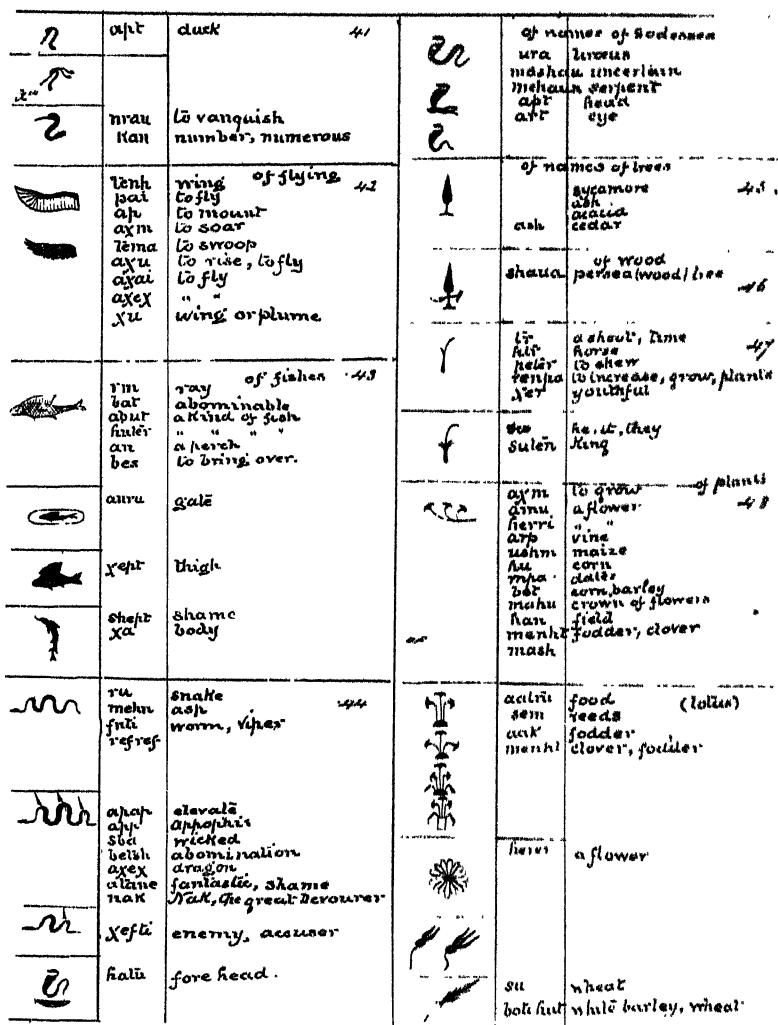 apt duck 41
nrau to vanquish
Kan number, numerous
of flying
tenh wing 42
pai to fly
ap to mount
axm to soar
tema to swoop
axu to rise, to fly
axai to fly
axex " "
xu wing or plume
of fishes 43
rm ray
bat abominable
abut a kind of fish
huter " " " "
an a perch
bes to bring over.
anru gate
xept thigh
shept shame
xa body
ru snake 44
mehn asp
fnti worm, viper
refref
apap elevate
app appophis
sba wicked
betsh abomination
axex dragon
atane fantastic, shame
nak Nak, the great Devourer
xefti enemy, accuser
hatu fore head.
of names of Goddesses
ura Uraeus
mashau uncertain
mehaun serpent
apt head
art eye
of names of trees
sycamore 45.
ash
acacia
ash cedar
of wood
shaua persea (wood) tree
46
tr a shoot, time
htr horse 47
peter to shew
renpa to increase, grow, plants
xer youthful
su he, it, they
suten King
of plants
axm to grow
amu a flower 48
herri " "
arp vine
ushm maize
hu corn
mpa dates
bet corn, barley
mahu crown of flowers
han field
menht fodder, clover
mash
aatru food (lotus)
sem reeds
aak fodder
menht clover, fodder
a flower
su wheat
white barley, wheat